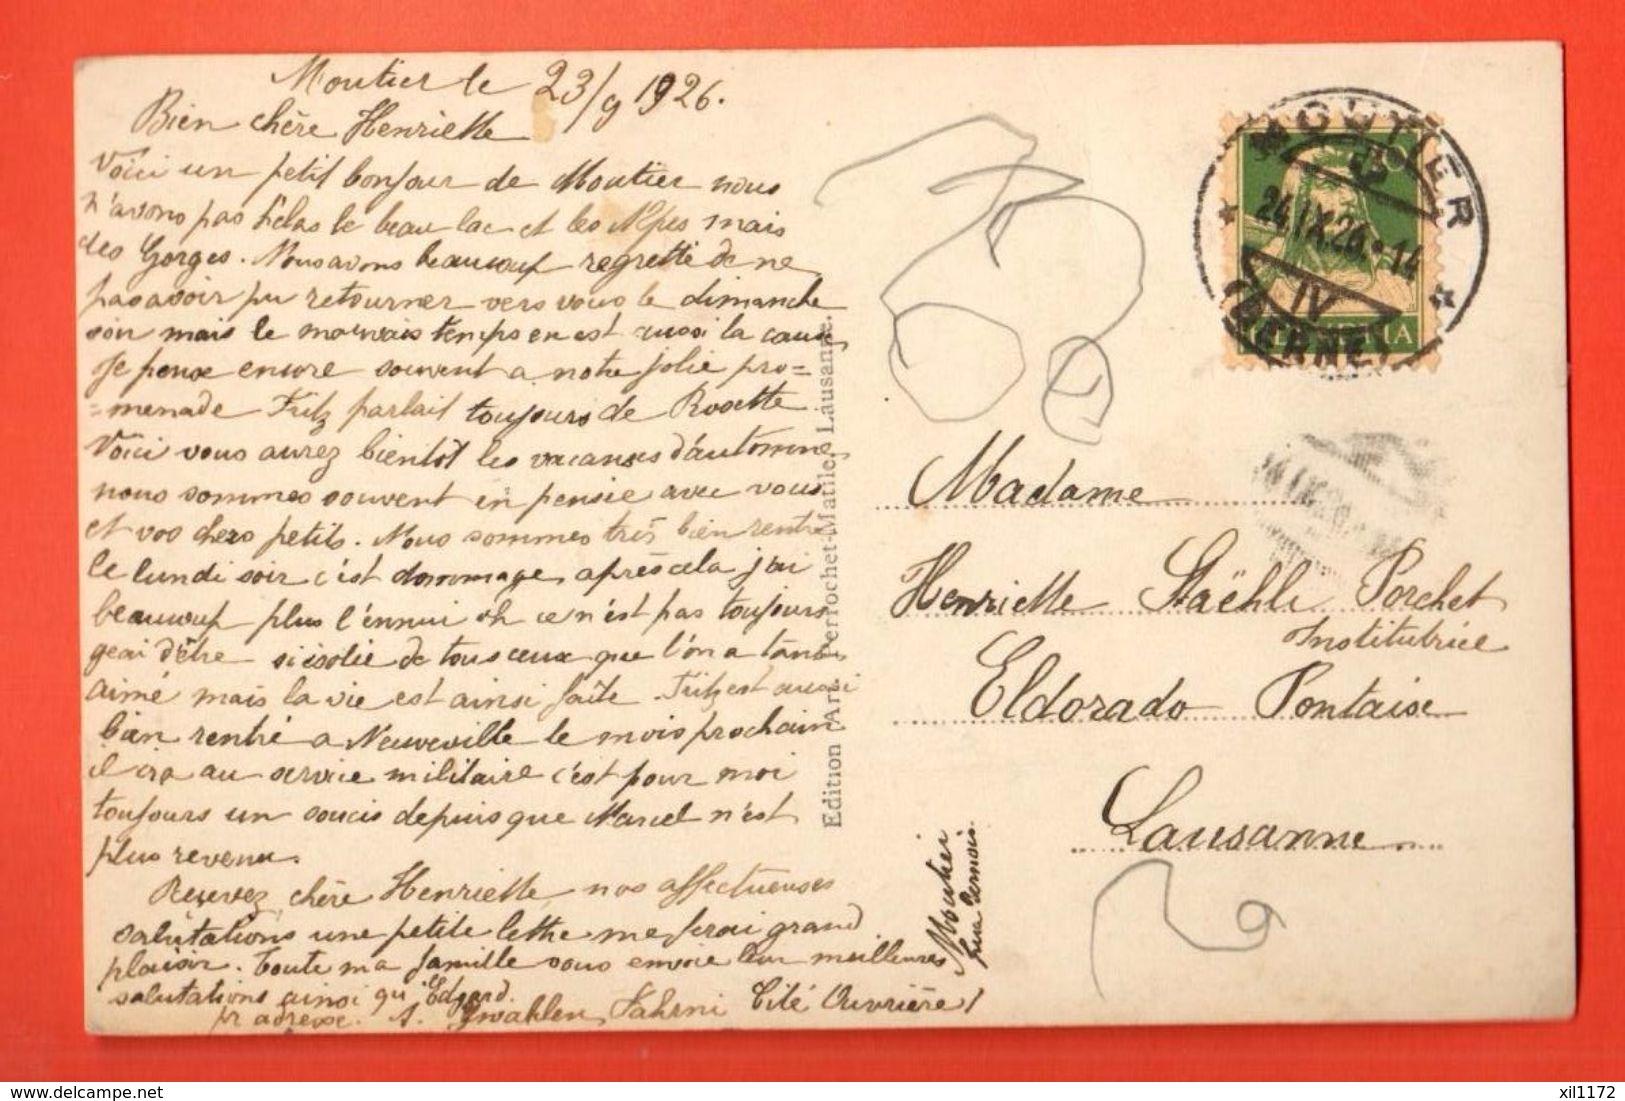 Moutier le 23/9 1926.
Bien chère Henriette
Voici un petit bonjour de Moutier nous
n'avons pas hélas le beau lac et les Alpes mais
des Gorges. Nous avons beaucoup regretté de ne
pas avoir pu retourner vers vous le dimanche
soir mais le mauvais temps en est aussi la cause
Je pense encore souvent a notre jolie pro=
=menade Fritz parlait toujours de Rosette
Voici vous aurez bientôt les vacanses d'automne
nous sommes souvent en pensée avec vous
et vos chers petits. Nous sommes très bien rentré
le lundi soir c'est dommage, après cela j'ai
beaucoup plus l'ennui oh ce n'est pas toujours
geai d'être si isolée de tous ceux que l'on a tant
aimé mais la vie est ainsi faite. Fritz est aussi
bien rentré a Neuveville le mois prochain
il ira au service militaire c'est pour moi
toujours un soucis depuis que Marcel n'est
plus revenu.
Recevez chère Henriette nos affectueuses
salutations une petite lettre me ferai grand
plaisir. Toute ma famille vous envoie leur meilleures
salutations ainsi qu'Edgard.
pr adresse. Zwahlen Fahrni Cité Ouvrière 1
Moutier
Jura Bernois.
Edition Art. Perrochet-Matile, Lausanne.
MOUTIER
24.IX.26.-14
IV
(BERNE)
HELVETIA
Madame
Henriette Staëhli Porchet
Institutrice
Eldorado Pontaise
Lausanne
xil1172